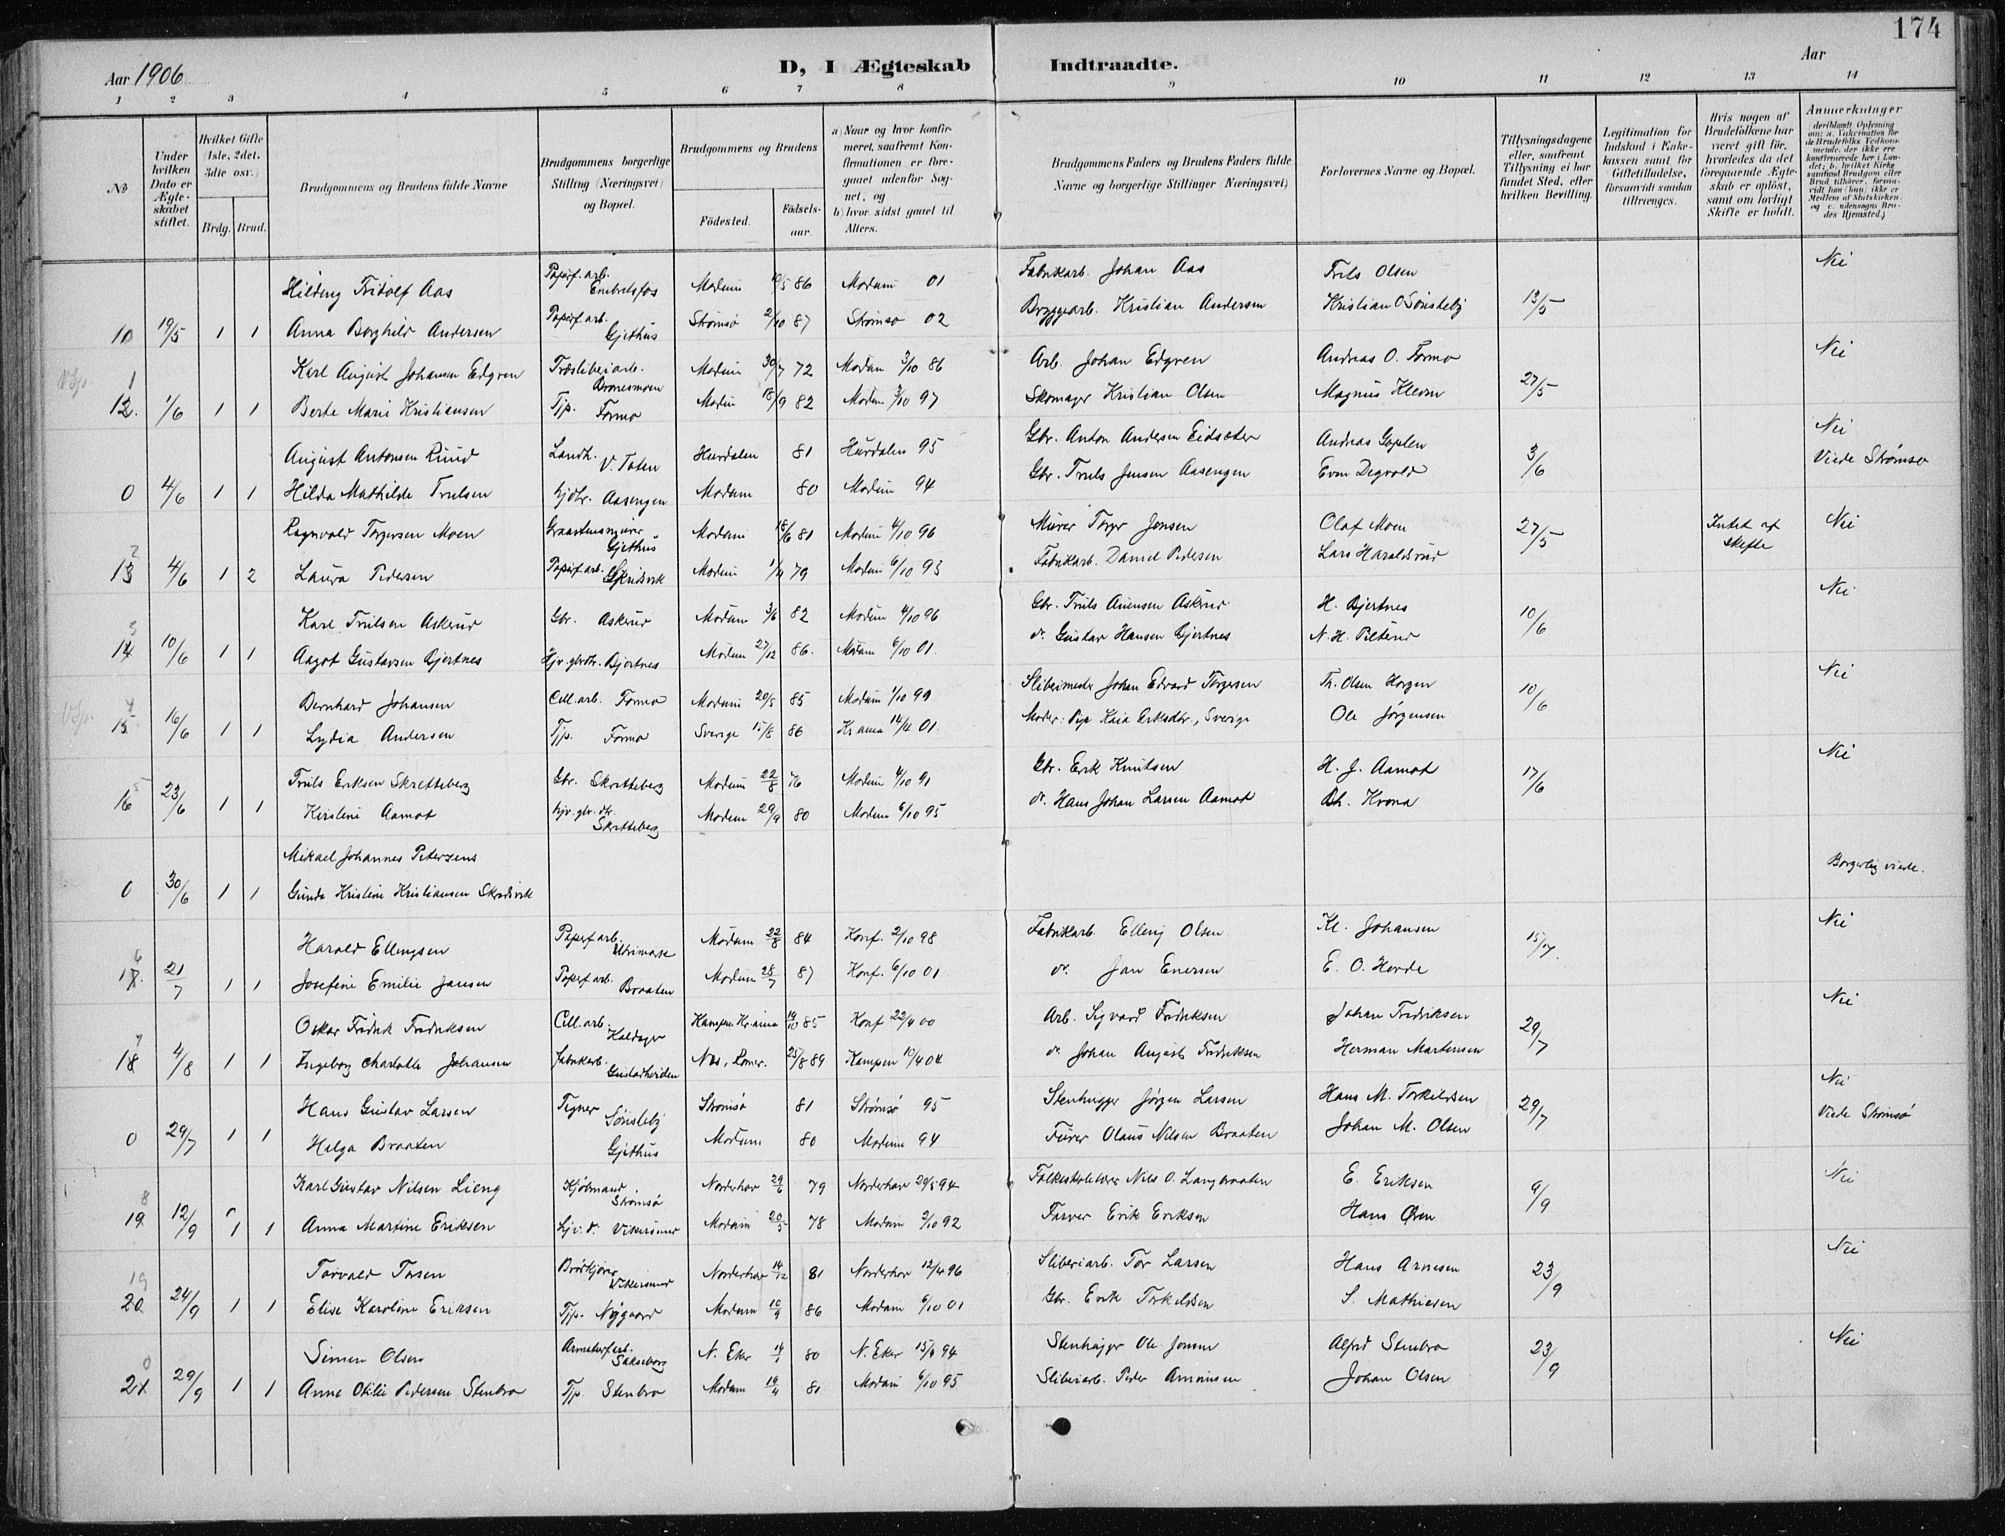 174
Aar 1906
D, I Ægteskab Indtraadte.
Aar
1 2 3 4 5 6 7 8 9 10 11 12 13 14
No
Under hvilken Dato er Ægteskabet stiftet.
Hvilket Gifte (1ste, 2det, 3die osv.)
Brdg. Brud.
Brudgommens og Brudens fulde Navne
Brudgommens borgerlige Stilling (Næringsvei) og Bopæl.
Brudgommens og Brudens
Födested.
Födselsaar.
a) Naar og hvor konfirmeret, saafremt Konfirmationen er foregaaet udenfor Sognet, og
b) hvor sidst gaaet til Alters.
Brudgommens Faders og Brudens Faders fulde Navne og borgerlige Stillinger (Næringsvei)
Forlovernes Navne og Bopæl.
Tillysningsdagene eller, saafremt Tillysning ei har fundet Sted, efter hvilken Bevilling.
Legitimation for Indskud i Enkekassen samt for Giftetilladelse, forsaavidt saadan tiltrænges.
Hvis nogen af Brudefolkene har været gift för, hvorledes da det foregaaende Ægteskab er oplöst, samt om lovligt Skifte er holdt.
Anmerkninger
Hilding Fridolf Aas Papirf.arb. Embretsfos Modum 10/5 86 Modum 01 Fabrikarb. Johan Aas Frits Olsen Nei
11 19/5 1 1 Anna Borghild Andersen Papirf.arb. Gjethus Strømsø 2/10 87 Strømsø 02 Bryggearb. Kristian Andersen Kristian O Sønsteby 13/5
Karl August Johansen Edgren Træsliberiarb. Modum 30/7 72 Modum 3/10 86 Arb. Johan Edgren Andreas O. Formo Nei
12. 1/6 1 1 Berte Marie Kristiansen Tjp. Formo Modum 18/9 82 Modum 3/10 97 Skomager Kristian Olsen Magnus 27/5
August Antonsen Ruud Landh. V. Toten Hurdalen 81 Hurdalen 95 Gbr. Anton Andersen Eidsæter Andreas Goplen Nei
0 4/6 1 1 Hilda Mathilde Trulsen hjdtr. Aasengen Modum 80 Modum 94 Gbr. Truls Jensen Aasengen Even Degvold 3/6 Viede Strømsø
Ragnvald Torgersen Moen Graastensmurer Gjethus Modum 18/6 81 Modum 4/10 96 Murer Torger Jensen Olaf Moen 27/5 Intet af skifte Nei
13 4/6 1 2 Laura Pedersen Papirf.arb. Modum 1/11 79 Modum 6/10 93 Fabrikarb. Daniel Pedersen Lars Haraldsrud
Karl Trulsen Askerud Gbr. Askerud Modum 3/6 82 Modum 4/10 96 Gbr. Truls Auensen Askerud H. Bjertnes 10/6 Nei
14 10/6 1 1 Aagot Gustavsen Bjertnes Hjv. gbrdtr. Bjertnes Modum 27/12 86. Modum 6/10 01. do. Gustav Hansen Bjertnes N. H. Pilterud
Bernhard Johansen Cell.arb. Formo Modum 20/5 85 Modum 1/10 99 Slibeimester Johan Edvard Torgersen Th. Olsen Horgen 10/6 Nei
15 16/6 1 1 Lydia Andersen Tjp. Formo Sverige 15/8 86 Kr.ania 14/4 01. Moder: Pige Kaia Sverige Ole Jørgensen
Truls Eriksen Skretteberg Gbr. Skretteberg Modum 22/8 76 Modum 4/10 91 Gbr. Erik Knutsen H. J. Aamot 17/6 Nei
16 23/6 1 1 Kirstine Aamot hjv. gbr. dtr. Skretteberg Modum 29/9 80 Modum 6/10 95 do. Hans Johan Larsen Aamot Krona
Mikael Johannes Petersens Borgerlig viede.
0 30/6 1 1 Gunda Kristine Kristiansen Skredsvik
Harald Ellingsen Papirf.arb. Modum 22/8 84 Konf. 2/10 98 Fabrikarb. Elling Olsen Kl. Johansen 15/7. Nei
17. 21/7 1 1 Josefine Emilie Jansen Papirf.arb. Braaten Modum 28/7 87 Konf. 6/10 01 do. Jan Enersen E. O. Horde
Oskar Fredrik Fredriksen Cell.arb. Kaldager Kampen Kr.ania 14/10 85 Konf 22/4 00 Arb. Sigvard Fredriksen Johan Fredriksen 29/7 Nei
18 4/8 1 1 Ingeborg Charlotte Johansen Fabrikarb. Gustadheiden Nes, Romer. 25/8 89 Kampen 10/4 04 do. Johan August Fredriksen Herman Martensen
Hans Gustav Larsen Tegner Sønsteby Strømsø 81 Strømsø 95 Stenhugger Jørgen Larsen Hans M. Torkildsen 29/7 Nei
0 29/7 1 1 Helga Braaten Gjethus Modum 80 Modum 94 Furer Olaus Nilsen Braaten Johan M. Olsen Viede Strømsø
Karl Gustav Nilsen Lieng Kjøbmand Strømsø Norderhov 29/6 79 Norderhov 29/5 94 Folkeskolelærer Nils O. Langbraaten E. Eriksen 9/9 Nei
19. 12/9 1 1 Anna Martine Eriksen hjv. d. Vikersund Modum 20/5 78 Modum 2/10 92 Farver Erik Eriksen Hans Øren
Torvald Tosen Brødkjører Vikersund Norderhov 14/12 81 Norderhov 12/4 96 Sliberiarb. Tor Larsen Hans Arnesen 23/9 Nei
20. 24/9 1 1 Elise Karoline Eriksen Tjp. Nygaard Modum 10/9 86 Modum 6/10 01 Gbr. Erik Torkildsen S. Mathiesen
Simen Olsen N. Eker 14/1 80 N. Eker 15/4 94 Stenhugger Ole Jonsen Alfred Stenbro 23/9 Nei
21. 29/9 1 1 Anne Otilie Pedersen Stenbro Tjp. Stenbro Modum 19/4 81 Modum 6/10 95 Sliberiarb. Peder Amonsen Johan Olsen